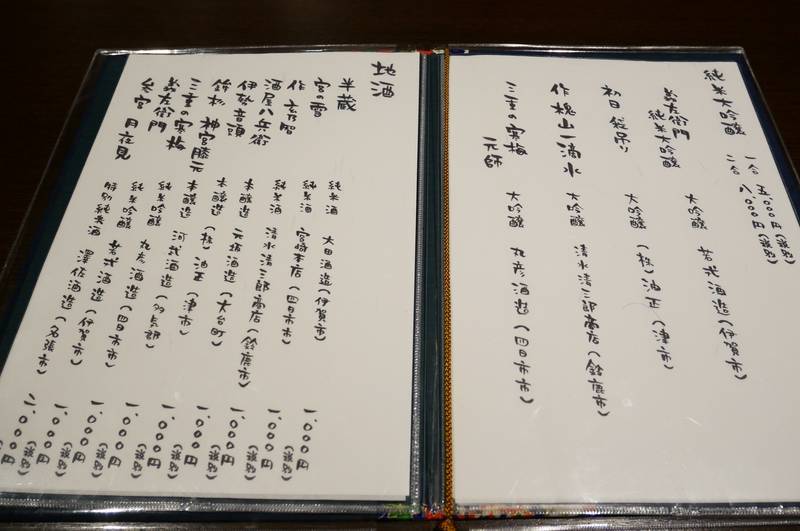 純米大吟醸
一合 五,〇〇〇円(税別)
二合 八,〇〇〇円(税別)
義左衛門 純米大吟醸 大吟醸 若戎酒造(伊賀市)
初日 袋吊り 大吟醸 (株)油正(津市)
作 槐山一滴水 大吟醸 清水清三郎商店(鈴鹿市)
三重の寒梅 元師 大吟醸 丸彦酒造(四日市市)
地酒
半蔵 純米酒 大田酒造(伊賀市) 一,〇〇〇円(税別)
宮の雪 純米酒 宮崎本店(四日市市) 一,〇〇〇円(税別)
作 玄乃智 純米酒 清水清三郎商店(鈴鹿市) 一,〇〇〇円(税別)
酒屋八兵衛 本醸造 元坂酒造(大台町) 一,〇〇〇円(税別)
伊勢音頭 本醸造 (株)油正(津市) 一,〇〇〇円(税別)
鉾杉 神宮藤元 本醸造 河武酒造(多気郡) 一,〇〇〇円(税別)
三重の寒梅 純米吟醸 丸彦酒造(四日市市) 一,〇〇〇円(税別)
義左衛門 純米吟醸 若戎酒造(伊賀市) 一,〇〇〇円(税別)
参宮 月夜見 特別純米酒 澤佐酒造(名張市) 二,〇〇〇円